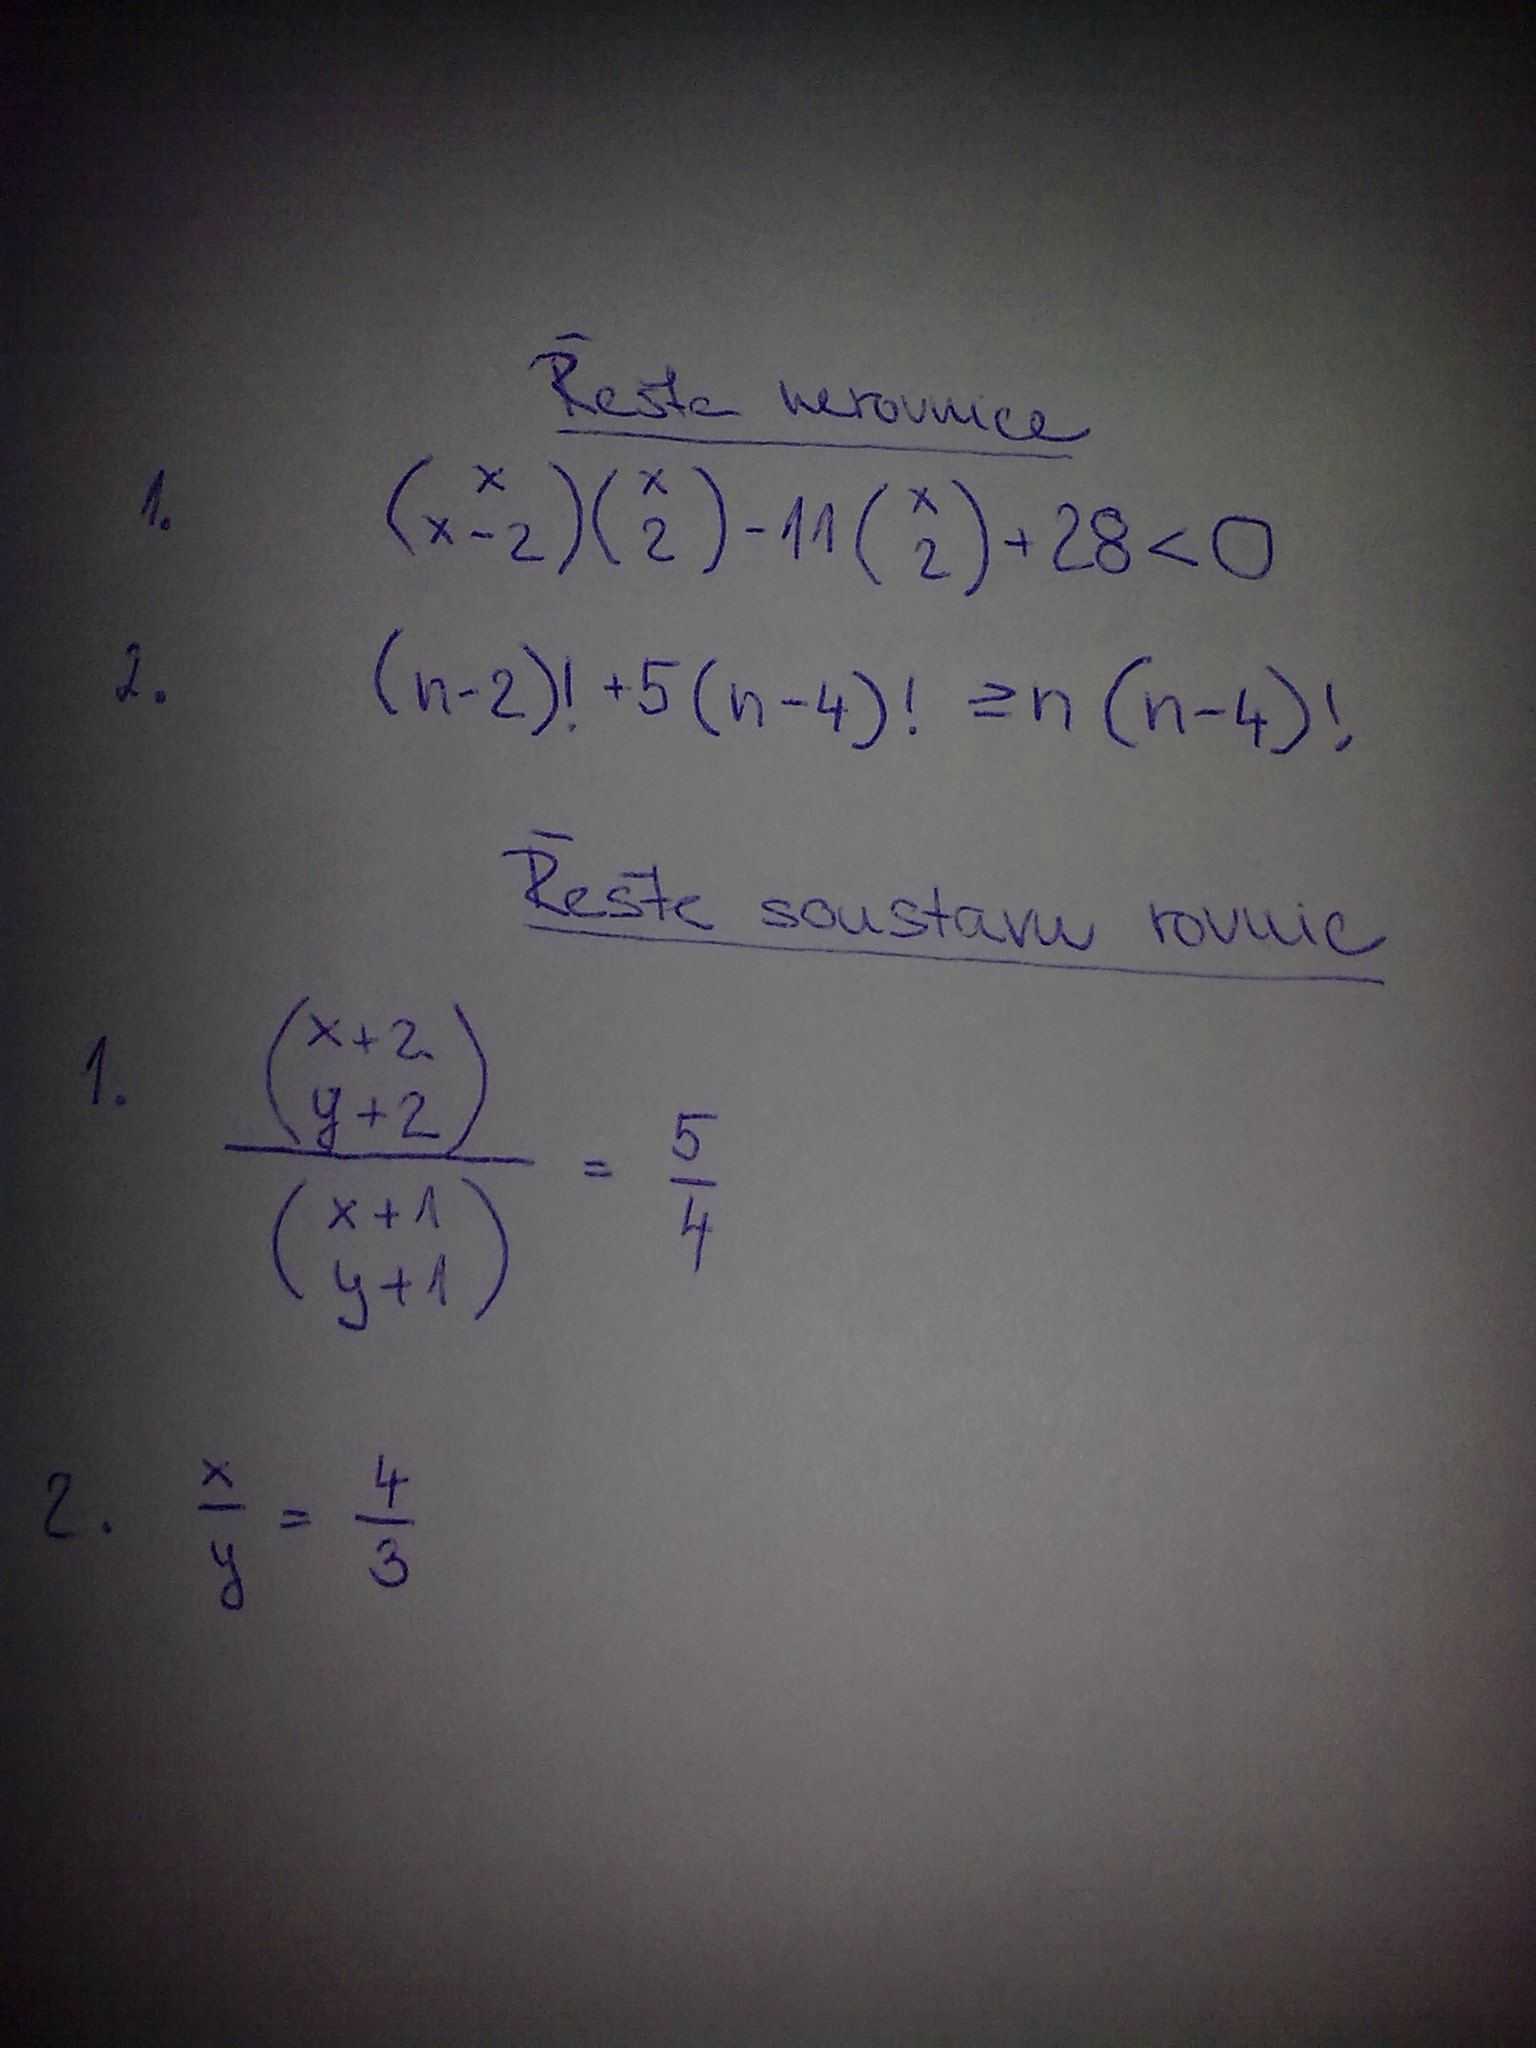 Řešte nerovnice
1. (x x-2)(x 2) - 11 (x 2) + 28 < 0
2. (n-2)! + 5 (n-4)! ≥ n (n-4)!
Řešte soustavu rovnic
1. (x+2 y+2) / (x+1 y+1) = 5/4
2. x/y = 4/3